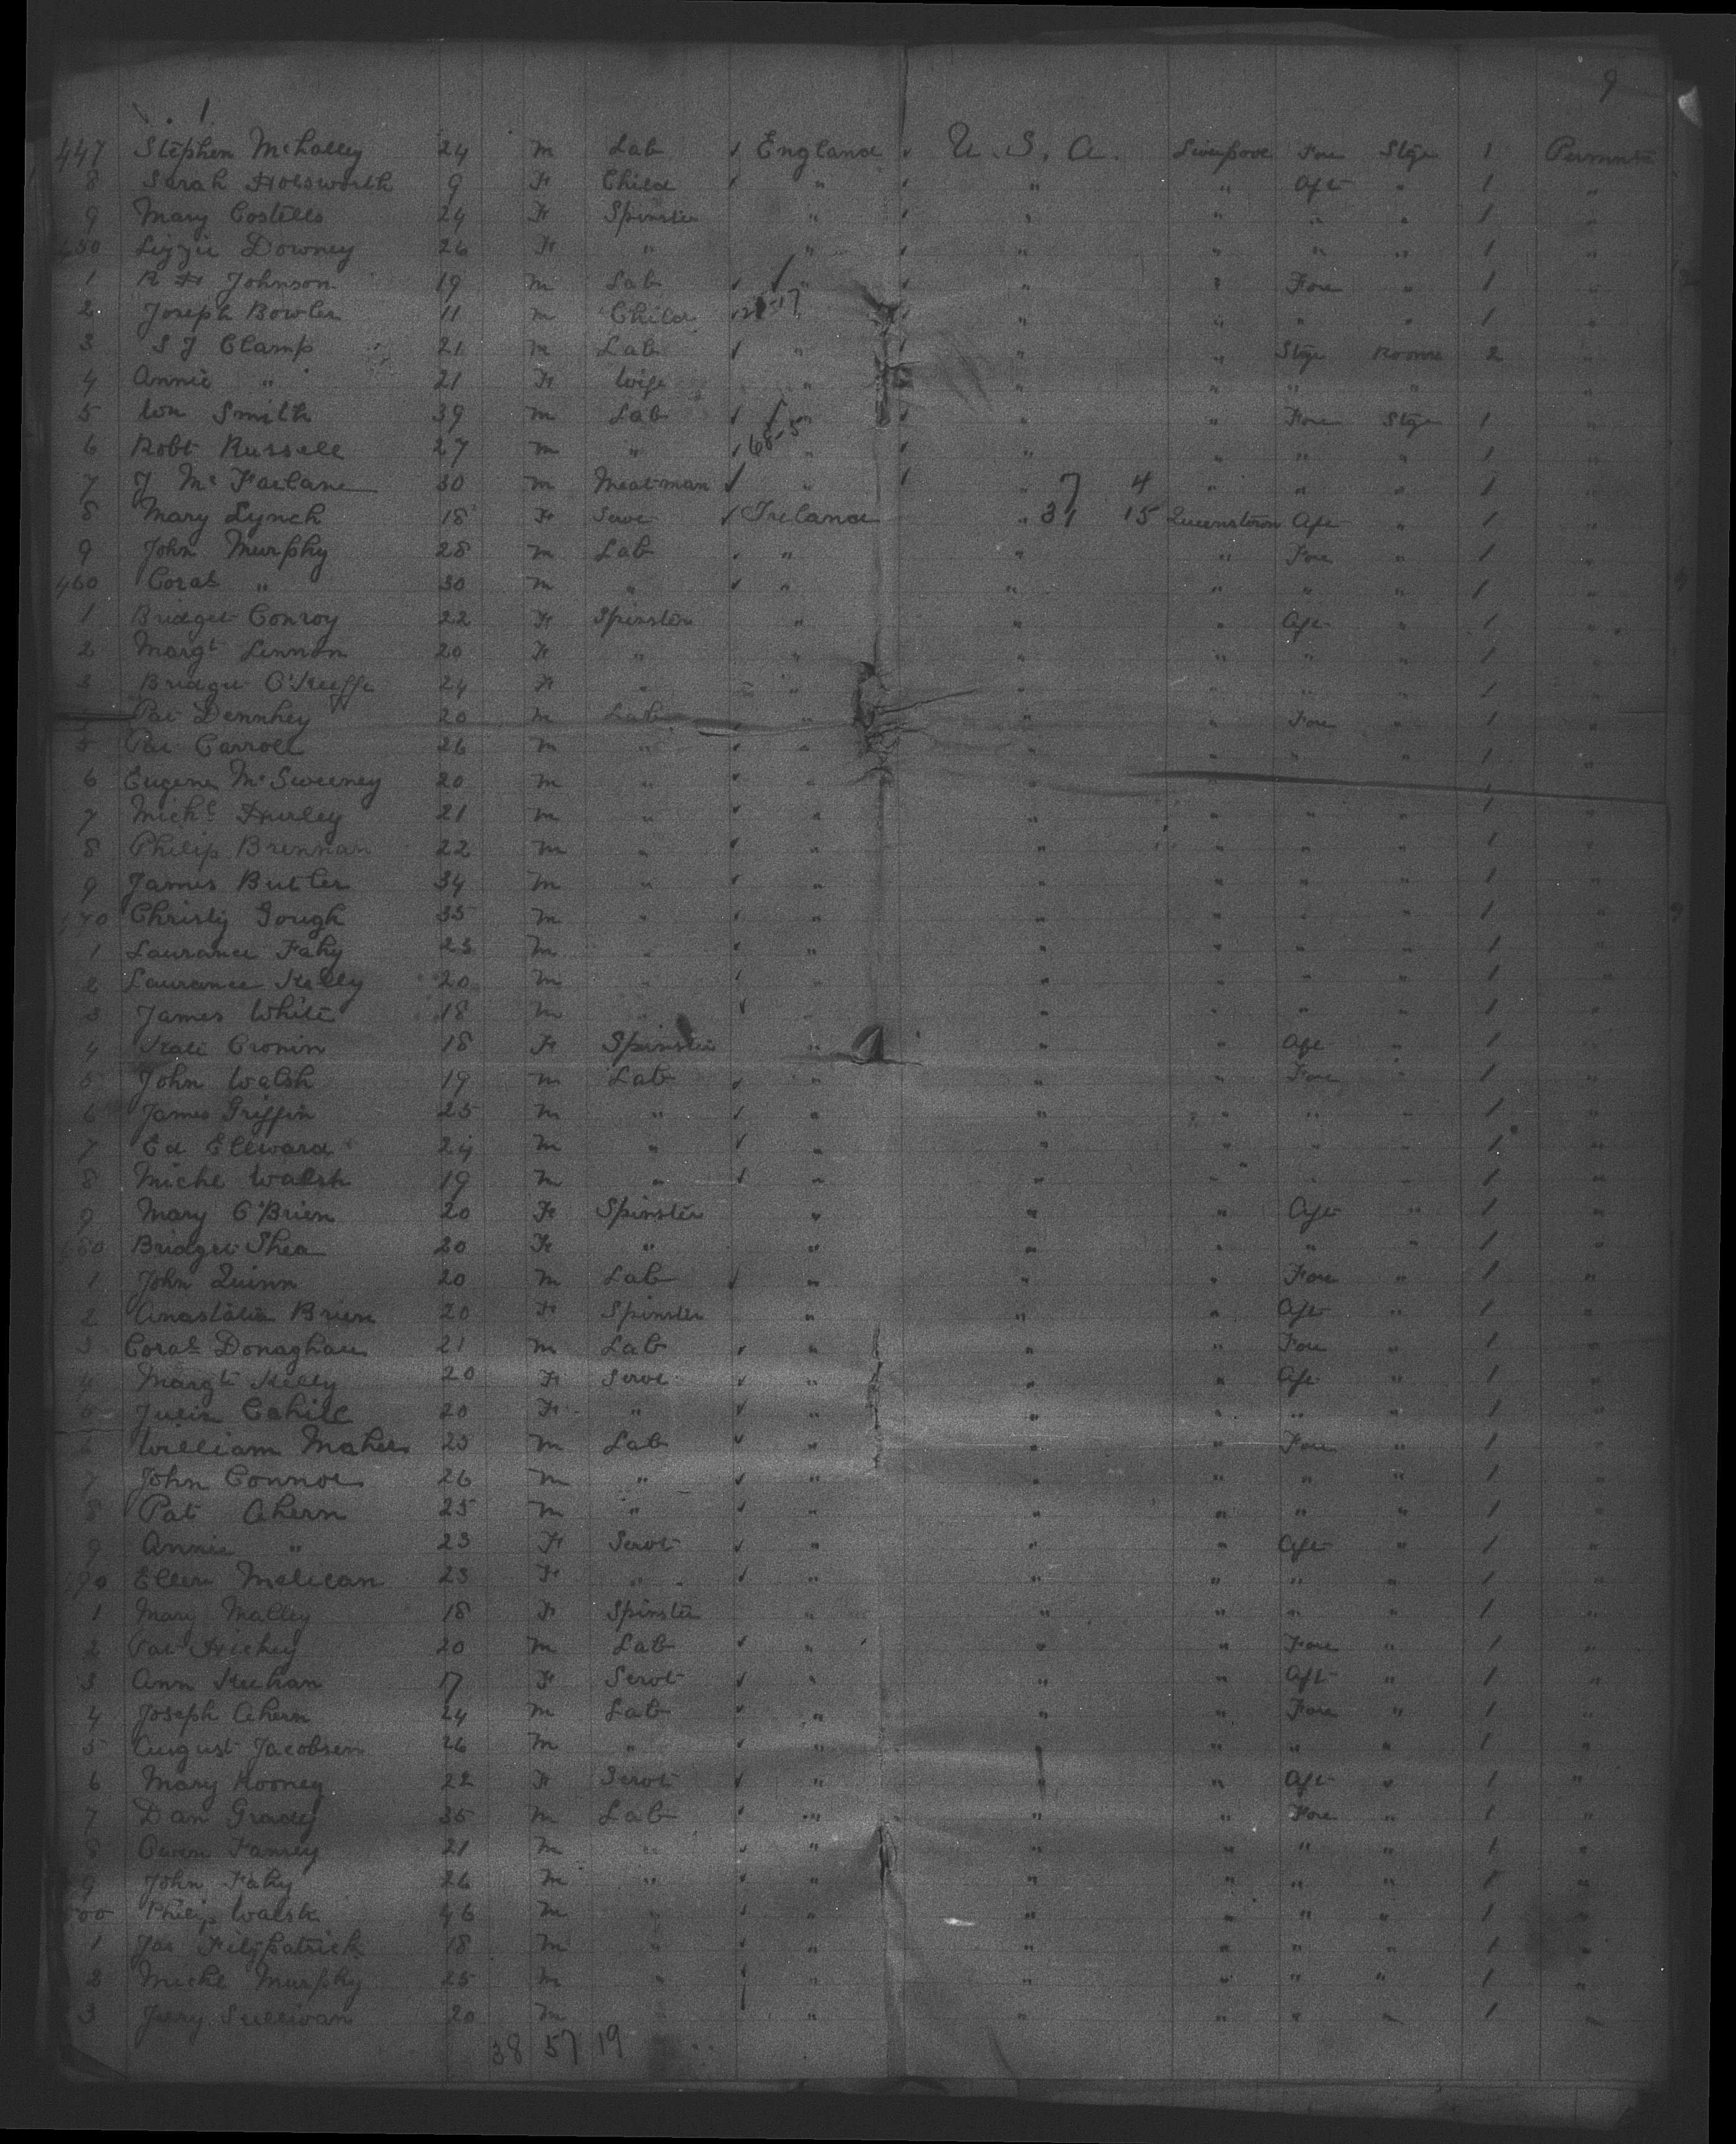 9
447 Stephen McHalley 24 m Lab England U.S.A. Liverpool Fore Stge 1 Permnte
8 Sarah Holsworth 9 F Child " " " Aft " 1 "
9 Mary Costello 24 F Spinster " " " " " 1 "
450 Lizzie Downey 26 F " " " " " " 1 "
1 R H Johnson 19 m Lab " " " Fore " 1 "
2 Joseph Bowler 11 m Child " " " " " 1 "
3 S J Clamp 21 m Lab " " " Stge Rooms 2 "
4 Annie " 21 F Wife " " " " " "
5 Wm Smith 39 m Lab " " " Fore Stge 1 "
6 Robt Russell 27 m " 68-5 " " " " " 1 "
7 J McFarlane 30 m Meatman " " 7 4 " " " 1 "
8 Mary Lynch 18 F Servt Ireland " 31 15 Queenstown Aft " 1 "
9 John Murphy 28 m Lab " " " Fore " 1 "
460 Corns " 30 m " " " " " " 1 "
1 Bridget Conroy 22 F Spinster " " " Aft " 1 "
2 Margt Lennon 20 F " " " " " " 1 "
3 Bridget O'Keeffe 24 F " " " " " " 1 "
Pat Dennhey 20 m Lab " " " Fore " 1 "
5 Pat Carroll 26 m " " " " " " 1 "
6 Eugene McSweeney 20 m " " " " " " 1 "
7 Michl Hurley 21 m " " " " " " 1 "
8 Philip Brennan 22 m " " " " " " 1 "
9 James Butler 34 m " " " " " " 1 "
470 Christy Gough 35 m " " " " " " 1 "
1 Laurance Fahy 23 m " " " " " " 1 "
2 Laurance Kelly 20 m " " " " " " 1 "
3 James White 18 m " " " " " " 1 "
4 Kate Cronin 18 F Spinster " " " Aft " 1 "
5 John Walsh 19 m Lab " " " Fore " 1 "
6 James Griffin 25 m " " " " " " 1 "
7 Ed Elleward 24 m " " " " " " 1 "
8 Michl Walsh 19 m " " " " " " 1 "
9 Mary O'Brien 20 F Spinster " " " Aft " 1 "
480 Bridget Shea 20 F " " " " " " 1 "
1 John Quinn 20 m Lab " " " Fore " 1 "
2 Anastatia Brien 20 F Spinster " " " Aft " 1 "
3 Corns Donaghan 21 m Lab " " " Fore " 1 "
4 Margt Kelly 20 F Servt " " " Aft " 1 "
5 Julia Cahill 20 F " " " " " " 1 "
6 William Maher 25 m Lab " " " Fore " 1 "
7 John Connor 26 m " " " " " " 1 "
8 Pat Ahern 25 m " " " " " " 1 "
9 Annie " 23 F Servt " " " Aft " 1 "
490 Ellen Melican 23 F " " " " " " 1 "
1 Mary Malley 18 F Spinster " " " " " 1 "
2 Pat Hickey 20 m Lab " " " Fore " 1 "
3 Ann Keehan 17 F Servt " " " Aft " 1 "
4 Joseph Ahern 24 m Lab " " " Fore " 1 "
5 August Jacobsen 26 m " " " " " " 1 "
6 Mary Rooney 22 F Servt " " " Aft " 1 "
7 Dan Grady 35 m Lab " " " Fore " 1 "
8 Owen 21 m " " " " " " 1 "
9 John Fahy 26 m " " " " " " 1 "
500 Philip Walsh 46 m " " " " " " 1 "
1 Jas Fitzpatrick 18 m " " " " " " 1 "
2 Michl Murphy 25 m " " " " " " 1 "
3 Jerry Sullivan 20 m " " " " " " 1 "
38 57 19